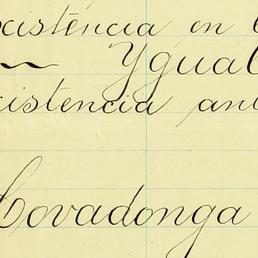 xistencia en l
~ Ygual
xistencia an
Covadonga